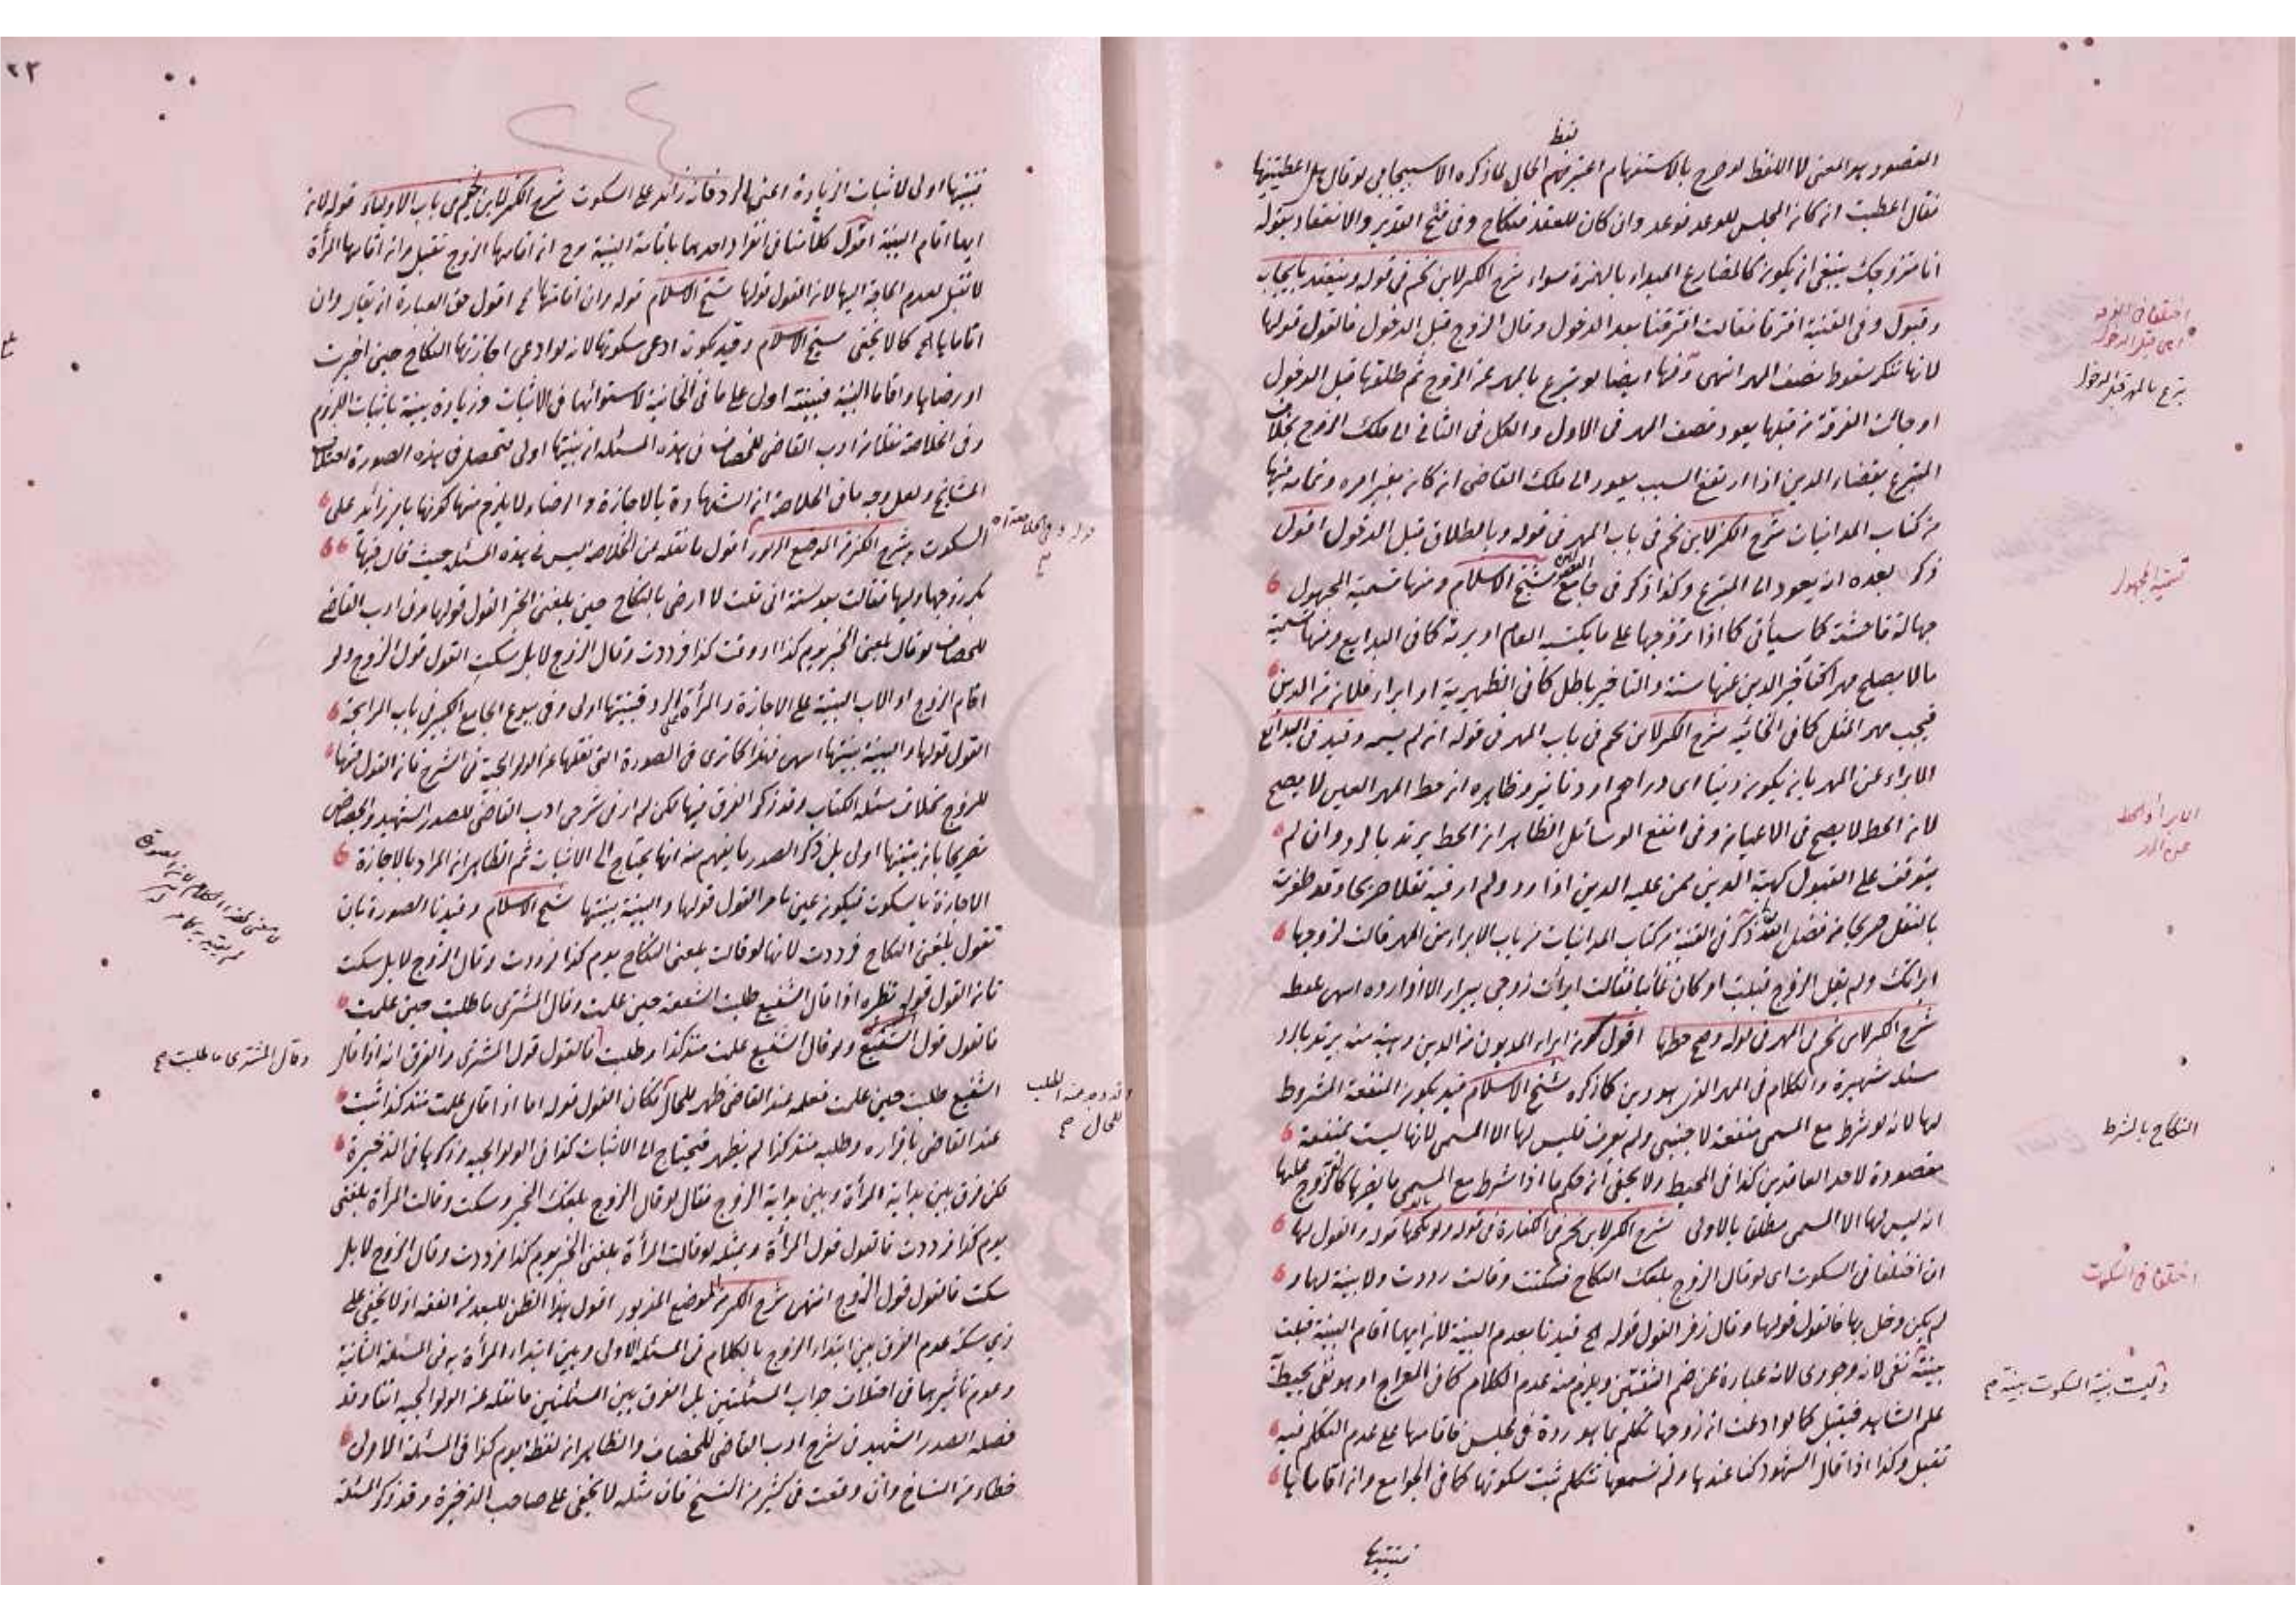 فقط
المقصود هو المعنى لا اللفظ لو صرح بالاستفهام اعتبر فهم الحال لما ذكره الاسبيجابي لو قال هل اعطيتنيها
فقال اعطيت ان كان المجلس للوعد فوعد وان كان للعقد فنكاح وفي فتح القدير والانعقاد بقوله
انا متزوجك ينبغي ان يكون كالمضارع المبدوء بالهمزة سواء شرح الكنز لابن نجم في قوله وينعقد بايجاب
وقبول وفي القنية افترقا فقالت افترقنا بعد الدخول وقال الزوج قبل الدخول فالقول قولها
لانها تنكر سقوط نصف المهر انتهى وفيها ايضا لو تبرع بالمهر عن الزوج ثم طلقها قبل الدخول
او جائت الفرقة من قبلها يعود نصف المهر في الاول والكل في الثاني الى ملك الزوج بخلاف
المتبرع بقضاء الدين اذا ارتفع السبب يعود الى ملك القاضي ان كان بغير امره وتمامه فيها
من كتاب المداينات شرح الكنز لابن نجم في باب المهر في قوله وبالطلاق قبل الدخول اقول
ذكر بعده انه يعود الى المتبرع وكذا ذكر في جامع شيخ الاسلام ومنها تسمية المجهول
جهالة فاحشة كما سيأتي كما اذا تزوجها على ما يكتسبه العام او يرثه كما في البدايع ومنها تسمية
مالا يصلح مهرا كتأخير الدين عنها سنة والتأخير باطل كما في الظهيرية او ابراء فلان من الدين
فيجب مهر المثل كما في الخانية شرح الكنز لابن نجم في باب المهر في قوله ان لم يسمه وقيد في البدائع
الابراء عن المهر بان يكون دينا اي دراهم او دنانير وظاهره ان حط المهر العين لا يصح
لان الحط لا يصح في الاعيان وفي انفع الوسائل الظاهر ان الحط يرتد بالرد وان لم
يتوقف على القبول كهبة الدين ممن عليه الدين اذا رد ولم ار فيه نقلا صريحا وقد ظفرت
بالنقل صريحا من فضل الله ذكر في القنية من كتاب المداينات من باب الابراء من المهر قالت لزوجها
ابرأتك ولم يقل الزوج قبلت او كان غائبا فقالت ابرأت زوجي يبرأ الا اذا رده انتهى غلط
شرح الكنز لابن نجم في المهر في قوله وصح حطها اقول كون ابراء المديون من الدين وهبته منه يرتد بالرد
مسئلة شهيرة والكلام في المهر الذي هو دين كما ذكره شيخ الاسلام قيد بكون المنفعة المشروطة
لها لانه لو شرط مع المسمى منفعة لاجنبي ولم يوف فليس لها الا المسمى لانها ليست بمنفعة
مقصودة لاحد العاقدين كذا في المحيط ولا يخفى ان حكم ما اذا شرط مع المسمى ما يضرها كالتزوج عليها
انه ليس لها الا المسمى مطلقا بالاولى شرح الكنز لابن نجم في الكفارة في قوله ولو نكحها قوله والقول لها
ان اختلفا في السكوت اي لو قال الزوج بلغك النكاح فسكتت وقالت رددت ولا بينة لها و
لم يكن دخل بها فالقول قولها وقال زفر القول قوله الخ قيدنا بعدم البينة لان ايهما اقام البينة قبلت
بينته نفي لانه وجودي لانه عبارة عن ضم الشفتين ويلزم منه عدم الكلام كما في المعراج او هو نفي يحيط
علم الشاهد فيقبل كما لو ادعت ان زوجها تكلم بما هو ردة في مجلس فاقامها على عدم التكلم فيه
تقبل وكذا اذا قال الشهود كنا عندها ولم نسمعها تتكلم ثبت سكوتها كما في الجوامع وان اقاماها
فبينتها
اختلفا في
قبل الدخول
تبرع بالمهر قبل الدخول
تسمية المجهول
الابراء والحط
عن المهر
النكاح بالشرط
اختلفا في السكوت
وليست بينة السكوت بينة
٢٣
فبينتها اولى لاثبات الزيادة اعني الرد فانه زائد على السكوت شرح الكنز لابن نجيم في باب الاولياء قوله لان
ايهما اقام البينة اقول كلامنا في انفراد احدهما باقامة البينة وح ان اقامها الزوج تقبل وان اقامها المرأة
لا تقبل لعدم الحاجة اليها لان القول قولها شيخ الاسلام قوله وان اقامتها الخ اقول حق العبارة ان يقال وان
اقاماها الخ كما لا يخفى شيخ الاسلام وقيد بكونه ادعى سكوتها لانه لو ادعى اجازتها النكاح حين اخبرت
او رضاها واقاما البينة فبينته اولى على ما في الخانية لاستوائهما في الاثبات وزيادة بينته باثبات اللزوم
وفي الخلاصة نقلا من ادب القاضي للخصاف في هذه المسئلة ان بينتها اولى فتحصل في هذه الصورة اختلاف
المشايخ ولعل وجه ما في الخلاصة ان الشهادة بالاجازة والرضاء لا يلزم منها كونها بامر زائد على
السكوت شرح الكنز في الموضع المزبور اقول ما نقله من الخلاصة ليس في هذه المسئلة حيث قال فيها
بكر زوجها وليها فقالت بعد سنة اني قلت لا ارضى بالنكاح حين بلغني الخبر القول قولها وفي ادب القاضي
للخصاف لو قال بلغني الخبر يوم كذا او وقت كذا فرددت وقال الزوج لا بل سكت القول قول الزوج ولو
اقام الزوج او الاب البينة على الاجازة والمرأة على الرد فبينتها اولى وفي بيوع الجامع الكبير في باب المرابحة
القول قولها والبينة بينتها انتهى فهذا كما ترى في الصورة التي نقلها عن الولوالجية في الشرح فان القول فيها
للزوج بخلاف مسئلة الكتاب وقد ذكر الفرق فيها لكن لم ار في شرحي ادب القاضي للصدر الشهيد والجصاص
تصريحا بان بينتها اولى بل ذكر الصدر ما يفهم منه انها يحتاج الى الاثبات ثم الظاهر ان المراد بالاجازة
الاجازة بالسكوت فيكون عين ما مر القول قولها والبينة بينتها شيخ الاسلام وقيدنا الصورة بان
تقول بلغني النكاح فرددت لانها لو قالت بلغني النكاح يوم كذا فرددت وقال الزوج لا بل سكت
فان القول قوله نظيره اذا قال الشفيع طلبت الشفعة حين علمت وقال المشتري ما طلبت حين علمت
فالقول قول الشفيع ولو قال الشفيع علمت منذ كذا وطلبت فالقول قول المشتري والفرق انه اذا قال
الشفيع طلبت حين علمت فعلمه عند القاضي ظهر للحال فكان القول قوله اما اذا قال علمت منذ كذا ثبت
عند القاضي باقراره وطلبه منذ كذا لم يظهر فيحتاج الى الاثبات كذا في الولوالجية وذكرها في الذخيرة
لكن فرق بين بداية المرأة وبين بداية الزوج فقال لو قال الزوج بلغك الخبر وسكت وقالت المرأة بلغني
يوم كذا فرددت فالقول قول المرأة وبمثله لو قالت المرأة بلغني الخبر يوم كذا فرددت وقال الزوج لا بل
سكت فالقول قول الزوج انتهى شرح الكنز في الموضع المزبور اقول هذا الظن للبعد من الفقه اذ لا يخفى على
ذي مسكة عدم الفرق بين ابتداء الزوج بالكلام في المسئلة الاولى وبين ابتداء المرأة به في المسئلة الثانية
وعدم تأثيرهما في اختلاف جواب المسئلتين بل الفرق بين المسئلتين ما نقله عن الولوالجية آنفا وقد
فصله الصدر الشهيد في شرح ادب القاضي للخصاف والظاهر ان لفظة يوم كذا في المسئلة الاولى
خطاء من النساخ وان وقعت في كثير من النسخ فان مثله لا يخفى على صاحب الذخيرة وقد ذكر المسئلة
وقال المشتري ما طلبت
للحال